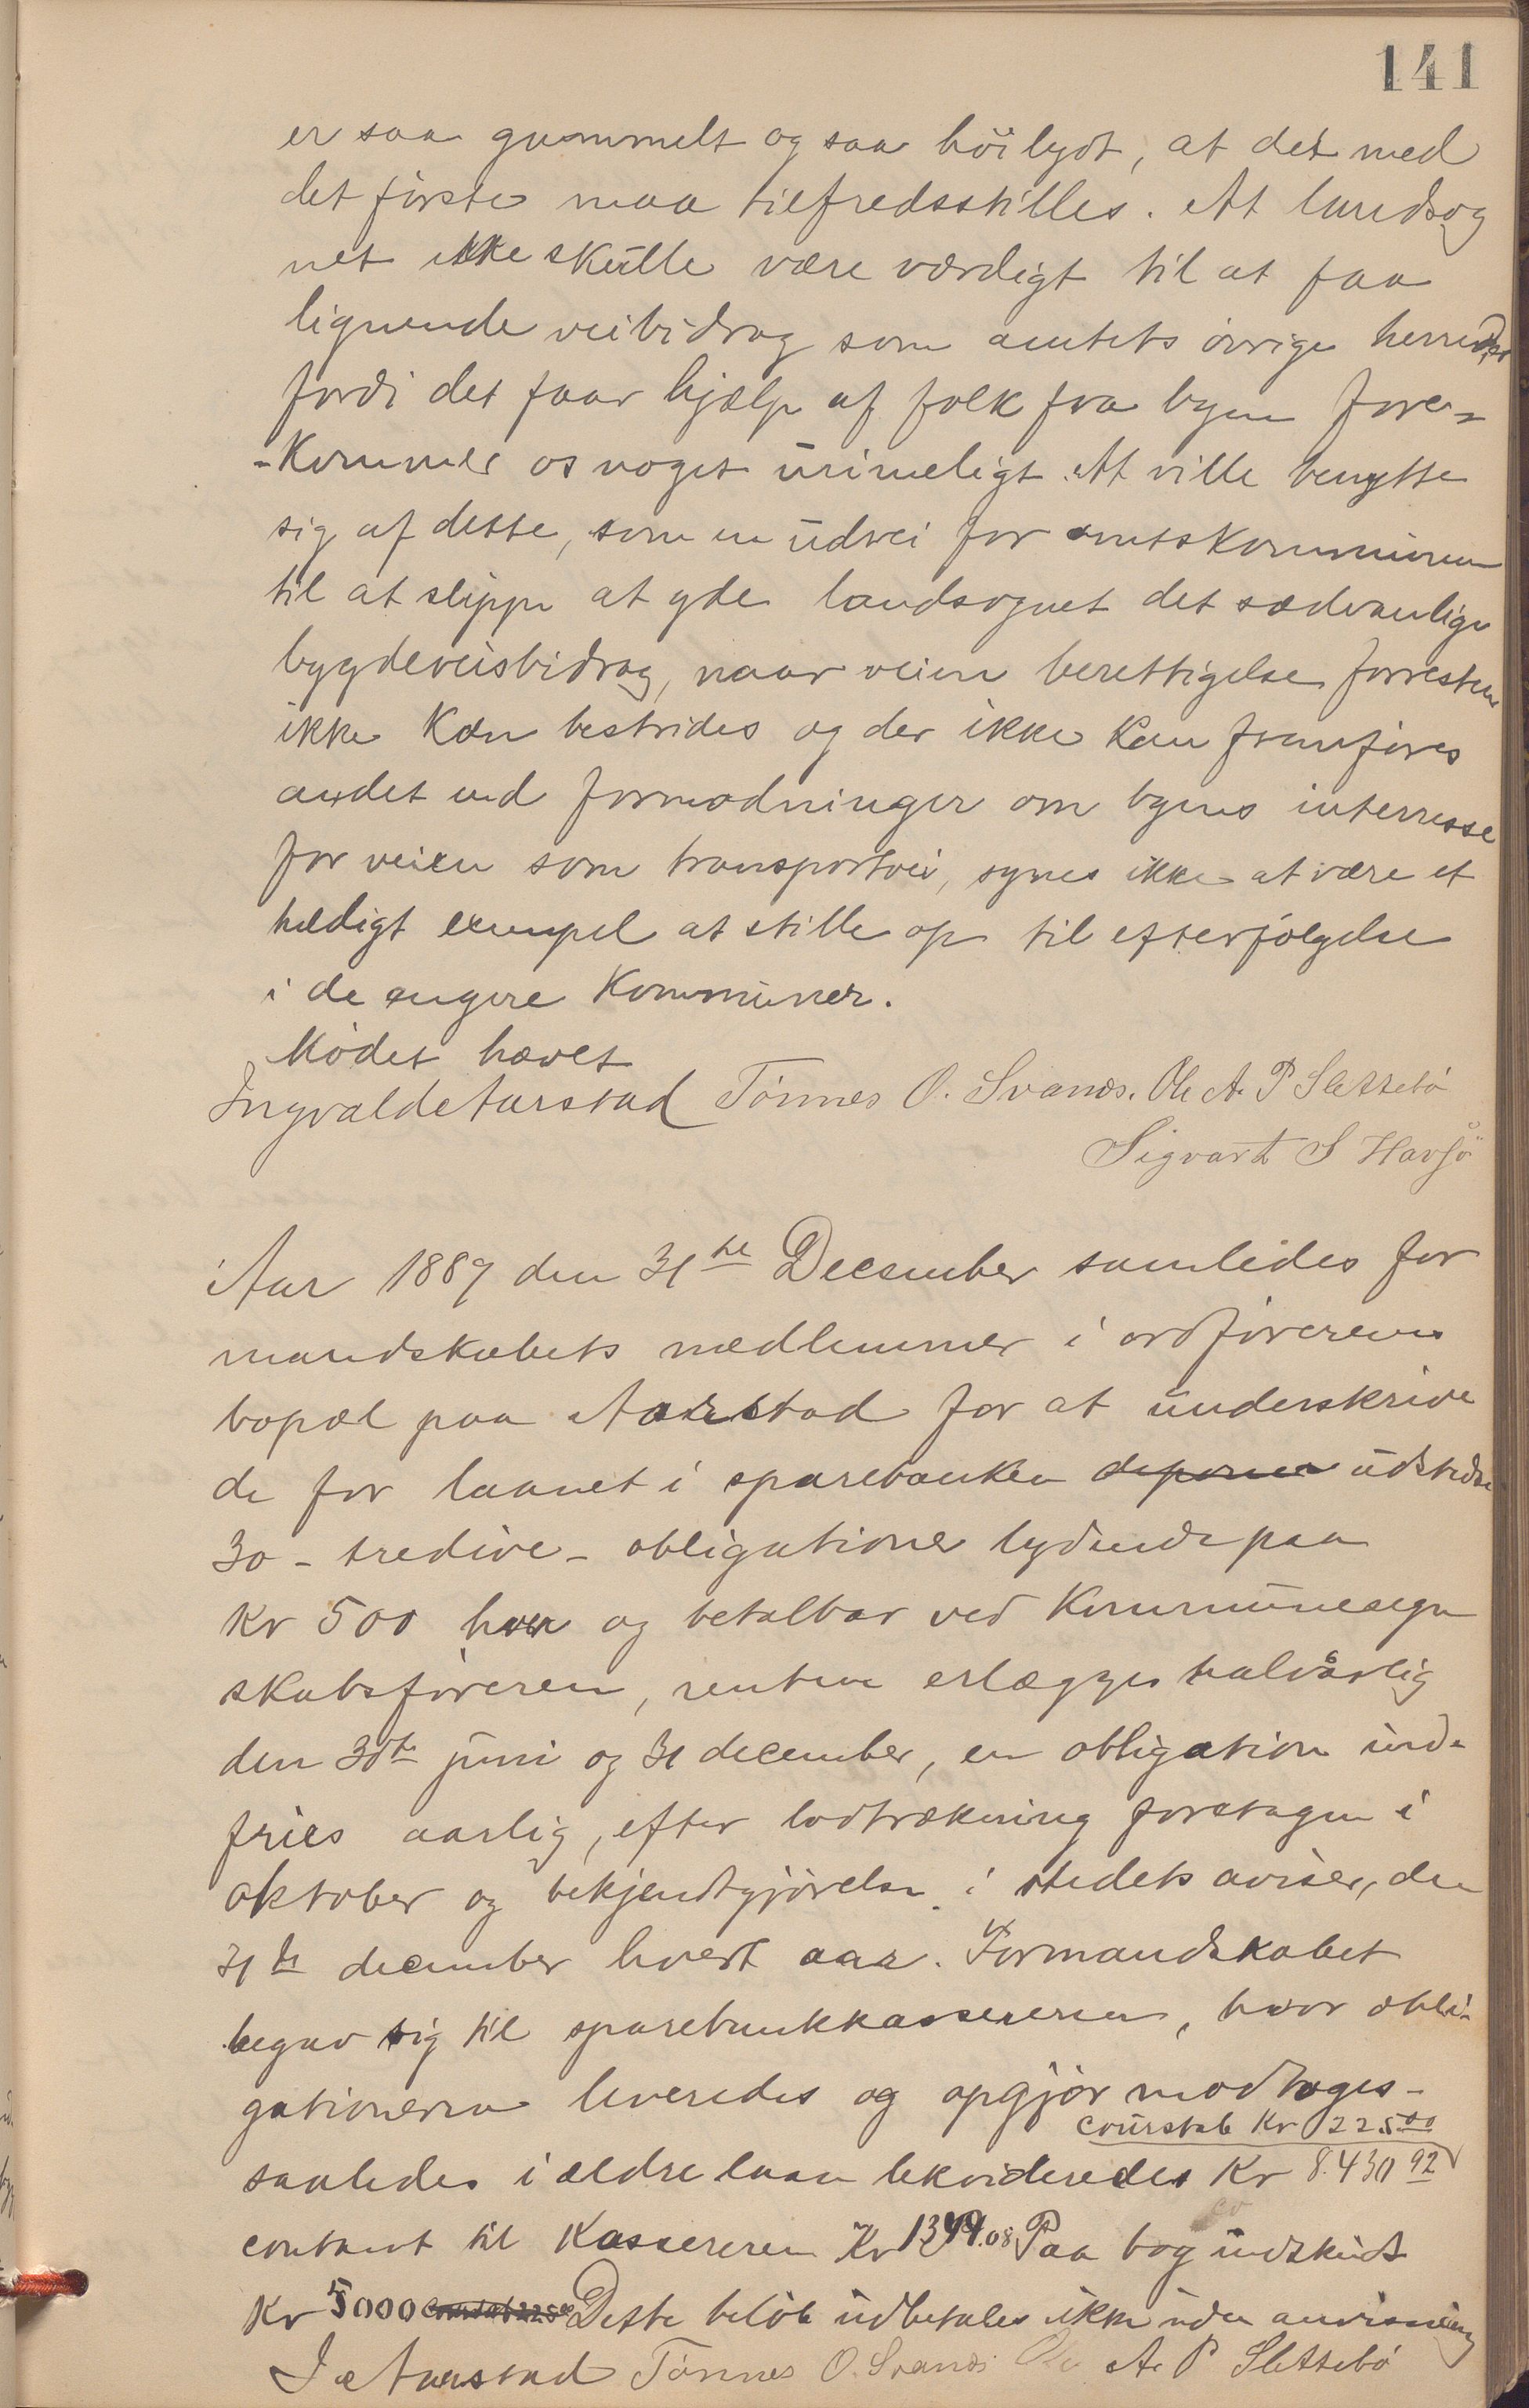 141
er saa gammelt og saa höilydt, at det med
det förste maa tilfredsstilles. At landsog
net ikke skulle være værdigt til at faa
lignende veibidrag som amtets övrige herreder
fordi det faar hjælp af folk fra byen fore-
-kommer os noget urimeligt. At ville benytte
sig af dette, som en udvei for amtskommunen
til at slippe at yde landsognet det sædvanlige
bygdeveisbidrag, naar veiens berettigelse forresten
ikke kan bestrides og der ikke kan fremföres
andet end formodninger om byens interresse
for veien som transportvei, synes ikke at være et
heldigt exempel at stille op til efterfölgelse
i de engere Kommuner.
Mödet hævet
Ingvald Aarstad Tönnes O. Svanes. Ole A. P Slettebö
Sigvart S Havsö
Aar 1889 den 31te December samledes for
mandskabets medlemmer i ordförerens
bopæl paa Aarstad for at underskrive
de for laanet i sparebanken udstedte
30 - tredive - obligationer lydende paa
Kr 500 hver og betalbar ved Kommuneregn
skabsföreren, renterne erlægges halvårlig
den 30te juni og 31 december, en obligation ind-
fries aarlig, efter lodtrækning foretagen i
oktober og bekjendtgjörelse i stedets aviser, den
31te december hvert aar. Formandskabet
begav sig til sparebankkassereren, hvor obli-
gationerne leveredes og opgjör modtoges -
courstab Kr 225.00
saaledes i ældre laan lekvideredes Kr 8.430 92
contant til Kassereren Kr 1344.08 Paa bog indskudt
Kr 5000 Dette belöb udbetales ikke uden anvisning
I Aarstad Tönnes O. Svanes Ole A. P Slettebö